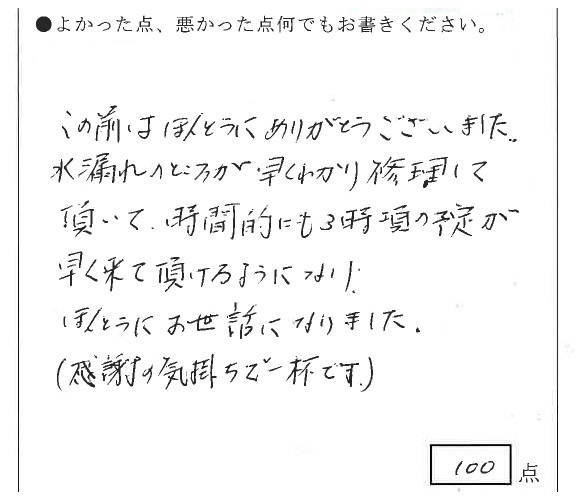 ●よかった点、悪かった点何でもお書きください。
この前はほんとうにありがとうございました。
水漏れのところが早くわかり修理して
頂いて、時間的にも3時項の予定が
早く来て頂けるようになり、
ほんとうにお世話になりました。
(感謝の気持ちで一杯です。)
100点